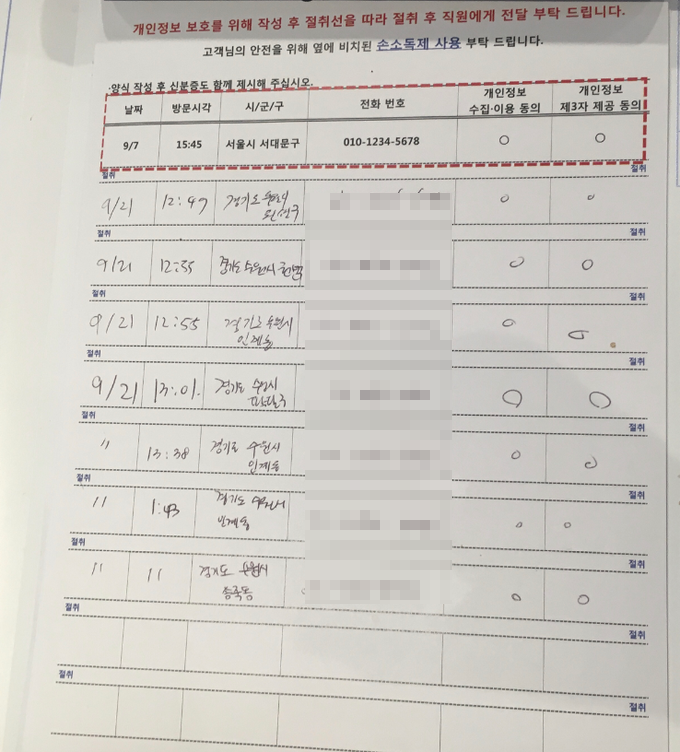 개인정보 보호를 위해 작성 후 절취선을 따라 절취 후 직원에게 전달 부탁 드립니다.
고객님의 안전을 위해 옆에 비치된 손소독제 사용 부탁 드립니다.
·양식 작성 후 신분증도 함께 제시해 주십시오.
날짜 방문시각 시/군/구 전화 번호 개인정보 수집·이용 동의 개인정보 제3자 제공 동의
9/7 15:45 서울시 서대문구 010-1234-5678 ○ ○
절취 절취
9/21 12:49 경기도 ○ ○
절취 절취
9/21 12:55 경기도 수원시 ○ ○
절취 절취
9/21 12:55 경기도 수원시 ○ ○
인계동
절취 절취
9/21 13:01. 경기도 수원시 ○ ○
팔달구
절취 절취
〃 13:38 경기도 수원시 ○ ○
인계동
절취 절취
〃 1:43 경기도 ○ ○
절취 절취
〃 11 경기도 수원시 ○ ○
절취 절취
절취 절취